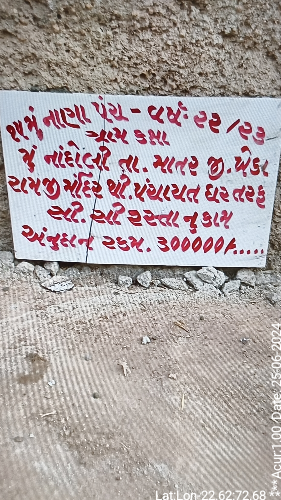 ૧૫મું નાણા પંચ - વર્ષ: ૨૨/૨૩
ગ્રામ કક્ષા
મું નાંદોલી તા. માતર જી. ખેડા
રામજી મંદિર થી. પંચાયત ઘર તરફ
સી. સી રસ્તા નુ કામ
અંનુદાન રકમ. ૩૦૦૦૦૦/-.....
Lat:Lon-22.62:72.68
***Acur:1.00 Date: 25-06-2024 ***